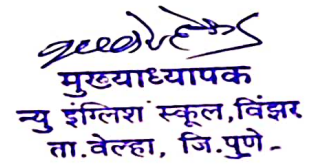 मुख्याध्यापक
न्यु इंग्लिश स्कूल,विंझर
ता.वेल्हा, जि.पुणे-